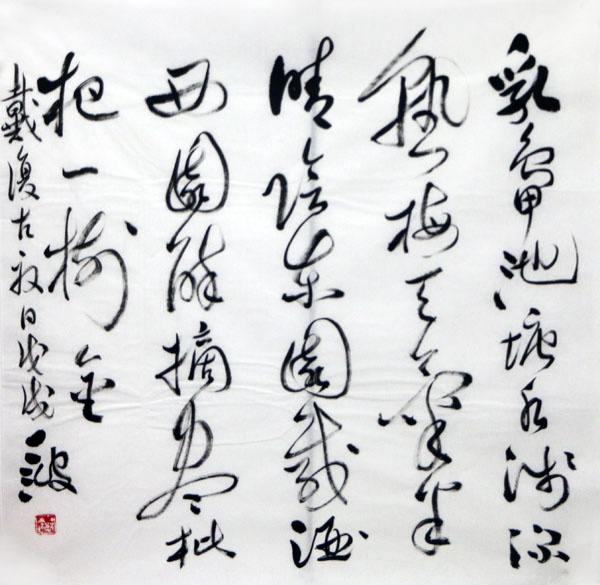 乳鴨池塘水淺深
熟梅天氣半
晴陰东園載酒
西園醉摘盡枇
杷一樹金
戴復古 日戊戌